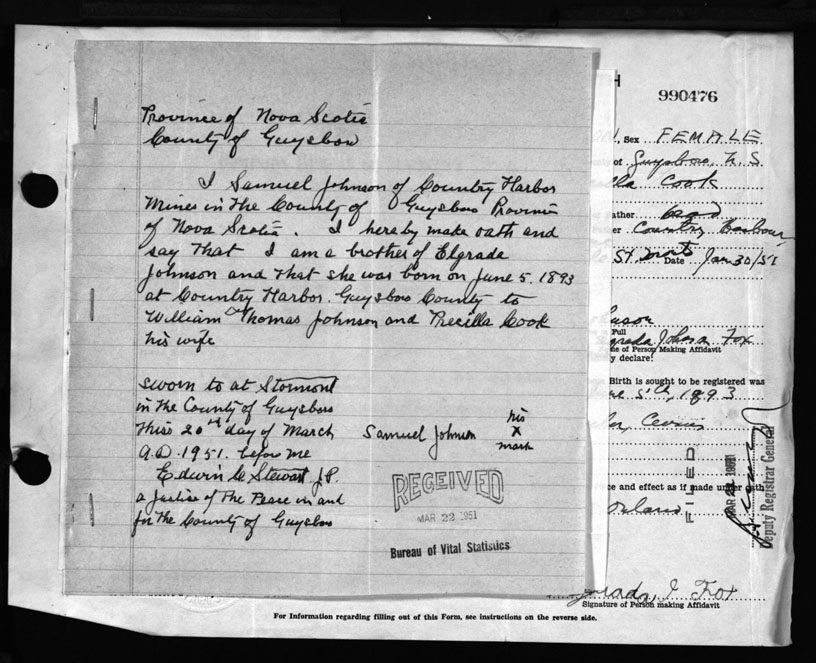 Province of Nova Scotia
County of Guysboro
I Samuel Johnson of Country Harbor
Mines in The County of Guysboro Province
of Nova Scotia. I hereby make oath and
say That I am a brother of Elgrada
Johnson and that she was born on June 5. 1893
at Country Harbor. Guysboro County to
William Thomas Johnson and Precilla Cook
his wife
Sworn to at Stormont
in the County of Guysboro
This 20th day of March
A.D. 1951. before me
Edwin C Stewart J.P.
a Justice of The Peace in and
for The County of Guysboro
Samuel Johnson
his
X
mark
RECEIVED
MAR 22 1951
Bureau of Vital Statistics
H
990476
Sex FEMALE
of Guysboro N.S.
Cook
ather dead
er Country Harbour
Date Jan 30/51
Full
Fox
me of Person Making Affidavit
y declare:
Birth is sought to be registered was
5th, 1893
ce and effect as if made under oath
FILED
MAR 22 1951
Deputy Registrar General
Fox
Signature of Person making Affidavit
For Information regarding filling out of this Form, see instructions on the reverse side.